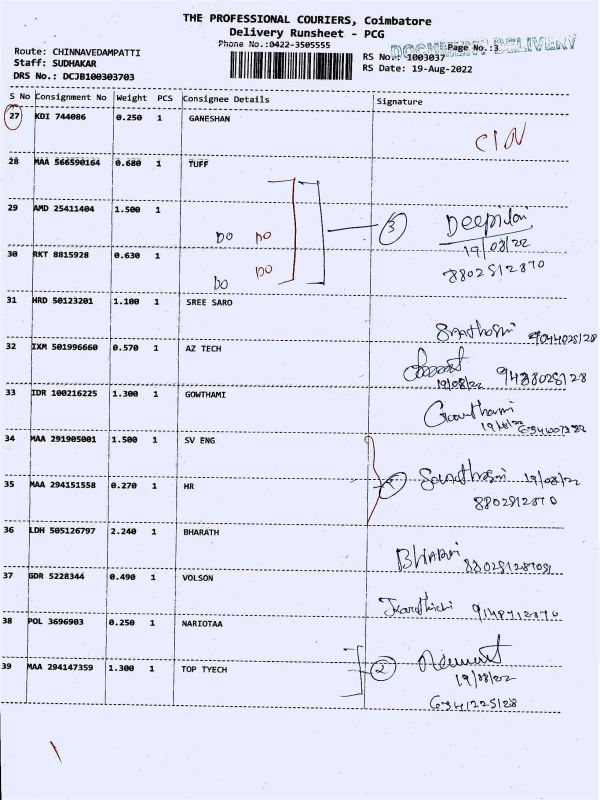 THE PROFESSIONAL COURIERS, Coimbatore
Delivery Runsheet - PCG
Phone No.:0422-3505555
DOCUMENT DELIVERY
Page No.:3
Route: CHINNAVEDAMPATTI
Staff: SUDHAKAR
DRS No.: DCJB100303703
RS No.: 1003037
RS Date: 19-Aug-2022
S No Consignment No Weight PCS Consignee Details Signature
27 KDI 744086 0.250 1 GANESHAN
28 MAA 566590164 0.680 1 TUFF
29 AMD 25411404 1.500 1
DO DO
3
19/08/22
8802512870
30 RKT 8815928 0.630 1
DO DO
31 HRD 50123201 1.100 1 SREE SARO
9044028128
32 IXM 501996660 0.570 1 AZ TECH
19/08/22 9488028128
33 IDR 100216225 1.300 1 GOWTHAMI
Gowthami
34 MAA 291905001 1.500 1 SV ENG
19/08/22
35 MAA 294151558 0.270 1 HR
8802812870
36 LDH 505126797 2.240 1 BHARATH
37 GDR 5228344 0.490 1 VOLSON
9148712870
38 POL 3696903 0.250 1 NARIOTAA
2
39 MAA 294147359 1.300 1 TOP TYECH
19/08/22